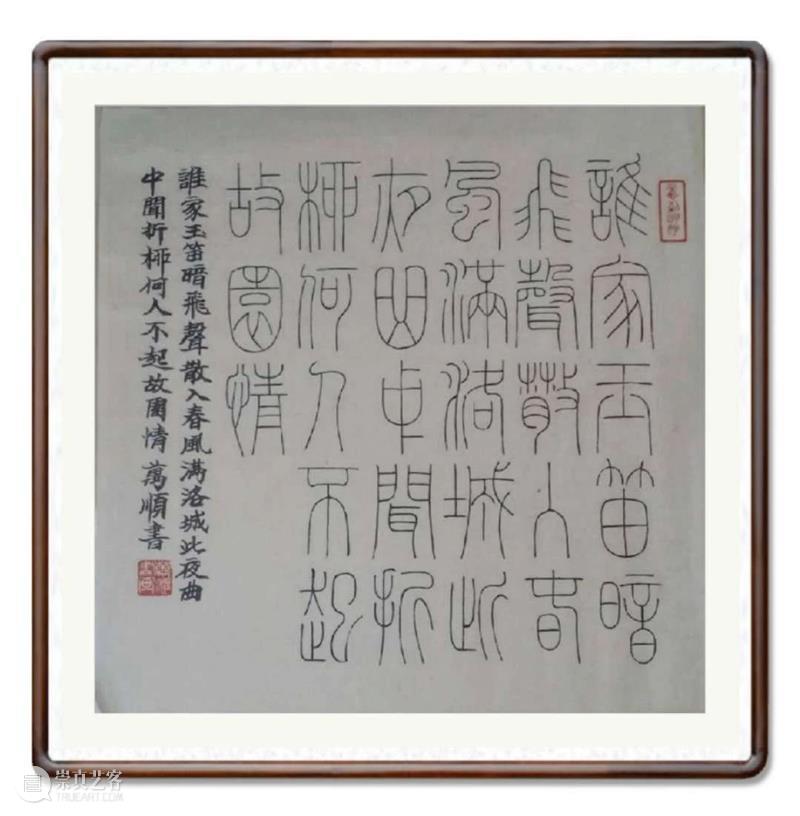 誰家玉笛暗
飛聲散入春
風滿洛城此
夜曲中聞折
柳何人不起
故園情
誰家玉笛暗飛聲散入春風满洛城此夜曲
中聞折柳何人不起故園情 萬順書
崇真艺客
TRUEART.COM